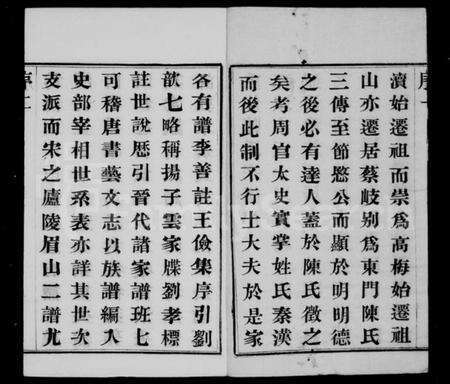 瀆始遷祖而崇爲高梅始遷祖
山亦遷居蔡岐别爲東門陳氏
三傳至節愍公而顯於明明德
之後必有達人蓋於陳氏徵之
矣考周官太史實掌姓氏秦漢
而後此制不行士大夫於是家
各有譜李善註王儉集序引劉
歆七略稱揚子雲家牒劉孝標
註世說歷引晉代諸家譜班七
可稽唐書藝文志以族譜編入
史部宰相世系表亦詳其世次
支派而宋之廬陵眉山二譜尤
序二